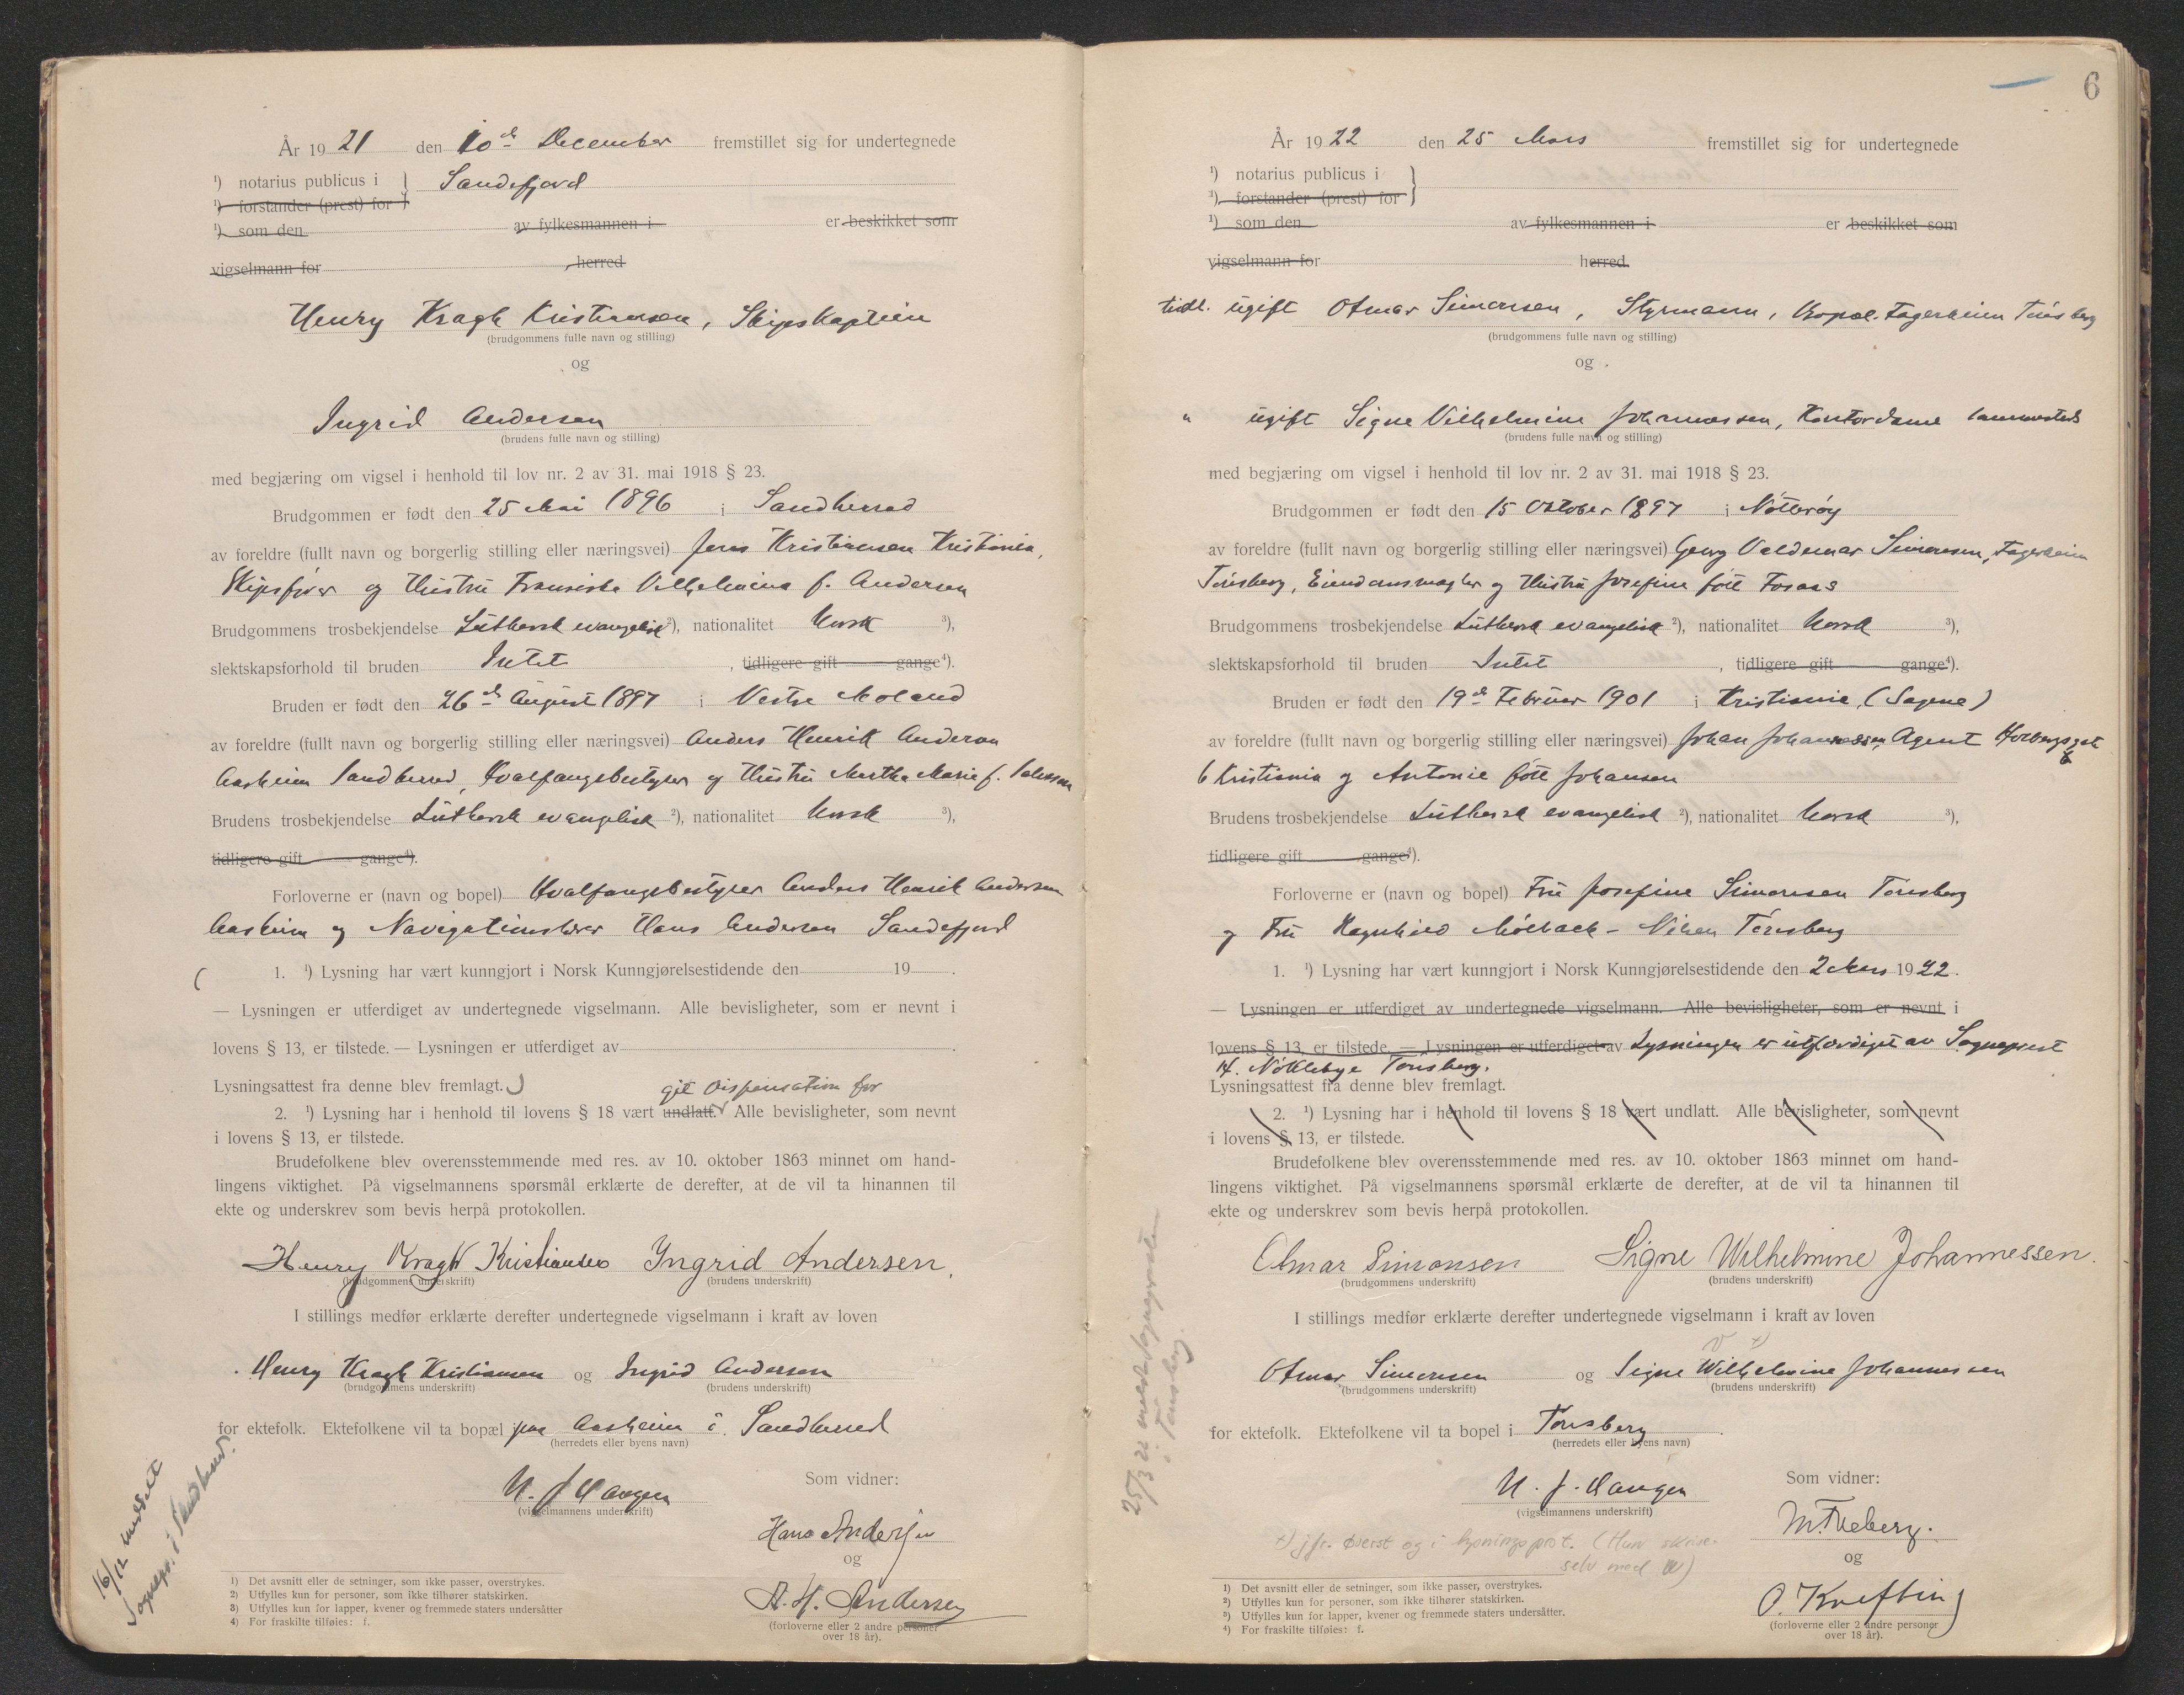 År 1921 den 10de December fremstillet sig for undertegnede
¹) notarius publicus i } Sandefjord
¹) forstander (prest) for
¹) som den av fylkesmannen i er beskikket som
vigselmann for , herred
Henry Kragh Kristiansen, Skipskaptein
(brudgommens fulle navn og stilling)
og
Ingrid Andersen
(brudens fulle navn og stilling)
med begjæring om vigsel i henhold til lov nr. 2 av 31. mai 1918 § 23.
Brudgommen er født den 25 Mai 1896 i Sandherred
av foreldre (fullt navn og borgerlig stilling eller næringsvei) Jens Kristiansen Kristiania,
Skipsfører og Hustru Fransiska Vilhelmina f. Andersen
Brudgommens trosbekjendelse Luthersk evangelisk ²), nationalitet Norsk ³),
slektskapsforhold til bruden Intet , tidligere gift gange⁴).
Bruden er født den 26de August 1897 i Vestre Moland
av foreldre (fullt navn og borgerlig stilling eller næringsvei) Anders Henrik Andersen
Aasheim Sandherred, Hvalfangstbestyrer og Hustru Martha Marie f.
Brudens trosbekjendelse Luthersk evangelisk ²), nationalitet Norsk ³),
tidligere gift gange⁴).
Forloverne er (navn og bopel) Hvalfangstbestyrer Anders Henrik Andersen
Aasheim og Navigationslærer Hans Andersen Sandefjord
( 1. ¹) Lysning har vært kunngjort i Norsk Kunngjørelsestidende den 19 .
— Lysningen er utferdiget av undertegnede vigselmann. Alle bevisligheter, som er nevnt i
lovens § 13, er tilstede. — Lysningen er utferdiget av .
Lysningsattest fra denne blev fremlagt.)
git dispensation for
2. ¹) Lysning har i henhold til lovens § 18 vært undlatt. Alle bevisligheter, som nevnt
i lovens § 13, er tilstede.
Brudefolkene blev overensstemmende med res. av 10. oktober 1863 minnet om hand-
lingens viktighet. På vigselmannens spørsmål erklærte de derefter, at de vil ta hinannen til
ekte og underskrev som bevis herpå protokollen.
Henry Kragh Kristiansen Ingrid Andersen.
(brudgommens underskrift) (brudens underskrift)
I stillings medfør erklærte derefter undertegnede vigselmann i kraft av loven
Henry Kragh Kristiansen og Ingrid Andersen
(brudgommens underskrift) (brudens underskrift)
for ektefolk. Ektefolkene vil ta bopæl paa Aasheim i Sandherred
(herredets eller byens navn)
N. J. Haugen Som vidner:
(vigselmannens underskrift)
Hans Andersen
og
A. H. Andersen
(forloverne eller 2 andre personer
over 18 år).
16/12 meddelt
Sognepr. i Sandherred.
1) Det avsnitt eller de setninger, som ikke passer, overstrykes.
2) Utfylles kun for personer, som ikke tilhører statskirken.
3) Utfylles kun for lapper, kvener og fremmede staters undersåtter
4) For fraskilte tilføies: f.
6
År 1922 den 25 Mars fremstillet sig for undertegnede
¹) notarius publicus i }
¹) forstander (prest) for
¹) som den av fylkesmannen i er beskikket som
vigselmann for herred.
tidl. ugift Otmar Simonsen, Styrmann, Bopæl. Fagerheim Tønsberg
(brudgommens fulle navn og stilling)
og
" ugift Signe Vilhelmine Johannessen, Kontordame sammesteds
(brudens fulle navn og stilling)
med begjæring om vigsel i henhold til lov nr. 2 av 31. mai 1918 § 23.
Brudgommen er født den 15 Oktober 1897 i Nøtterøy
av foreldre (fullt navn og borgerlig stilling eller næringsvei) Georg Valdemar Simonsen, Fagerheim
Tønsberg, Eiendomsmægler og Hustru Josefine født Foraas
Brudgommens trosbekjendelse Luthersk evangelisk ²), nationalitet Norsk ³),
slektskapsforhold til bruden Intet , tidligere gift gange⁴).
Bruden er født den 19de Februar 1901 i Kristiania, (Sagene)
av foreldre (fullt navn og borgerlig stilling eller næringsvei) Johan Johannessen, Agent Holbergsgate
6 Kristiania og Antonie født Johansen
Brudens trosbekjendelse Luthersk evangelisk ²), nationalitet Norsk ³),
tidligere gift gange⁴).
Forloverne er (navn og bopel) Fru Josefine Simonsen Tønsberg
og Fru Ragnhild Mølbach - Nilsen Tønsberg
1. ¹) Lysning har vært kunngjort i Norsk Kunngjørelsestidende den 2 Mars 1922.
— Lysningen er utferdiget av undertegnede vigselmann. Alle bevisligheter, som er nevnt i
lovens § 13, er tilstede. — Lysningen er utferdiget av Lysningen er utferdiget av Sogneprest
H. Nøkleby Tønsberg.
Lysningsattest fra denne blev fremlagt.
2. ¹) Lysning har i henhold til lovens § 18 vært undlatt. Alle bevisligheter, som nevnt
i lovens § 13, er tilstede.
Brudefolkene blev overensstemmende med res. av 10. oktober 1863 minnet om hand-
lingens viktighet. På vigselmannens spørsmål erklærte de derefter, at de vil ta hinannen til
ekte og underskrev som bevis herpå protokollen.
Otmar Simonsen Signe Wilhelmine Johannessen.
(brudgommens underskrift) (brudens underskrift)
I stillings medfør erklærte derefter undertegnede vigselmann i kraft av loven
V +)
Otmar Simonsen og Signe Wilhelmine Johannessen
(brudgommens underskrift) (brudens underskrift)
for ektefolk. Ektefolkene vil ta bopel i Tønsberg.
(herredets eller byens navn)
N. J. Haugen Som vidner:
(vigselmannens underskrift)
og
O. Krefting
(forloverne eller 2 andre personer
over 18 år).
25/3 22 meddelt Sognepresten
i Tønsberg.
+) jfr. øverst og i lysningsprot. (Hun skriver
selv med W)
1) Det avsnitt eller de setninger, som ikke passer, overstrykes.
2) Utfylles kun for personer, som ikke tilhører statskirken.
3) Utfylles kun for lapper, kvener og fremmede staters undersåtter.
4) For fraskilte tilføies: f.